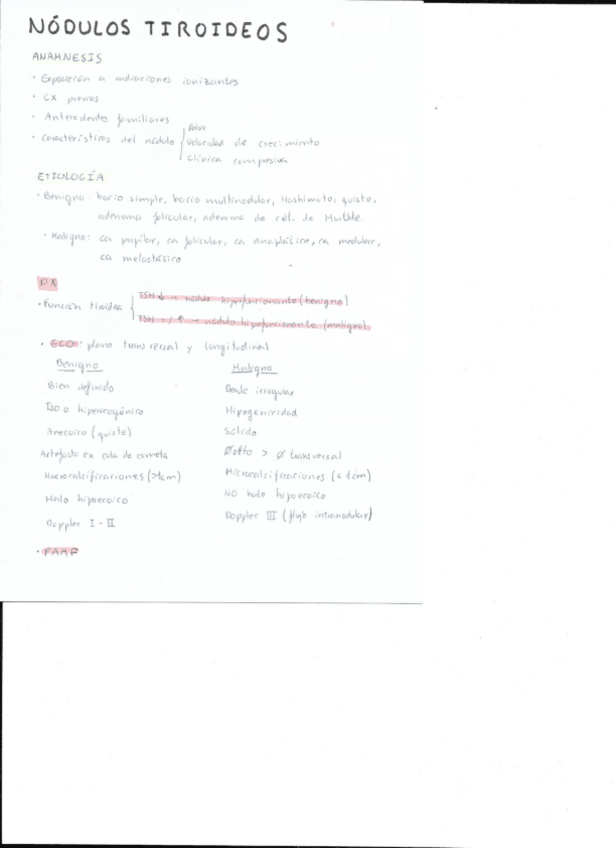 NÓDULOS TIROIDEOS
ANAMNESIS
· Exposición a radiaciones ionizantes
· CX previas
· Antecedentes familiares
· Características del nódulo
Dolor
Velocidad de crecimiento
Clínica compresiva
ETIOLOGÍA
· Benigno: bocio simple, bocio multinodular, Hashimoto, quiste,
adenoma folicular, adenoma de cél. de Hurthle.
· Maligno: ca papilar, ca folicular, ca anaplásico, ca medular,
ca metastásico
DX
· Función tiroidea
TSH ↓ → nódulo hiperfuncionante (benigno)
TSH = / ↑ → nódulo hipofuncionante (maligno)
· ECO: plano transversal y longitudinal
Benigno
Maligno
Bien definido
Borde irregular
Iso o hiperecogénico
Hipogenicidad
Anecoico (quiste)
Sólido
Artefacto en cola de cometa
Ø > Ø transversal
Macrocalcificaciones (>1cm)
Microcalcificaciones (<1cm)
Halo hipoecoico
NO halo hipoecoico
Doppler I - II
Doppler III (flujo intranodular)
· PAAF